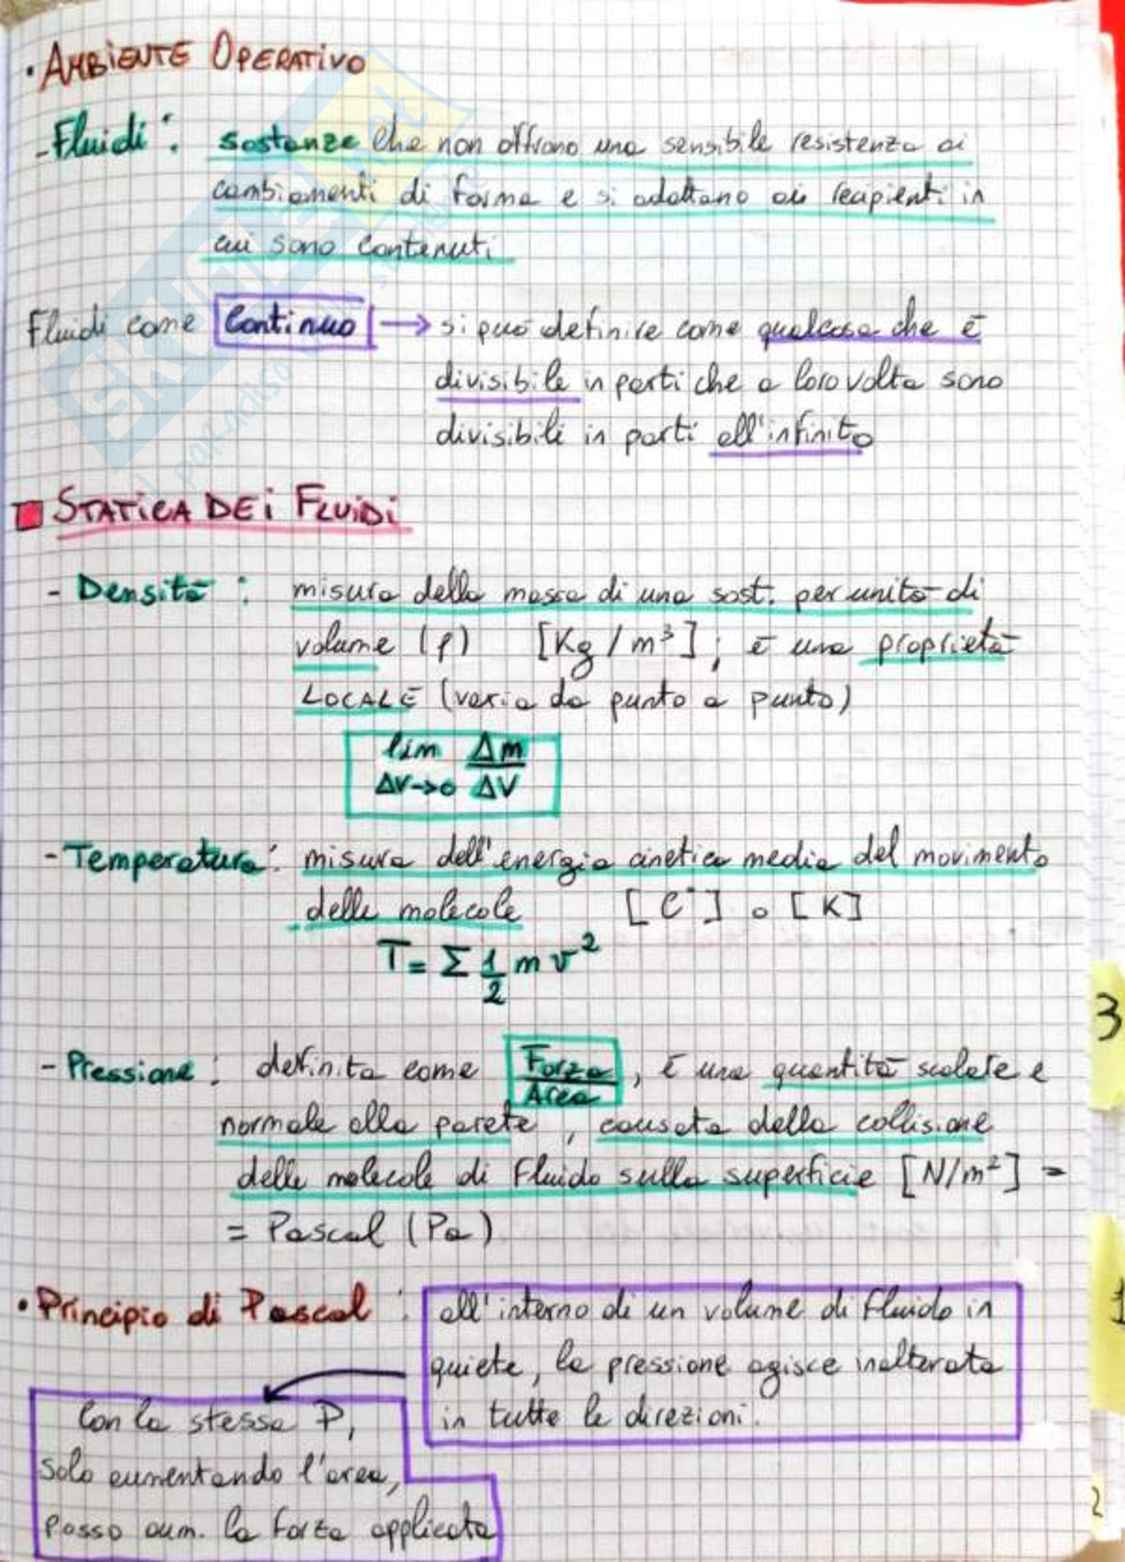 • AMBIENTE OPERATIVO
- Fluidi: sostanze che non offrono una sensibile resistenza ai
cambiamenti di forma e si adattano ai recipienti in
cui sono contenuti
Fluidi come Continuo → si può definire come qualcosa che è
divisibile in parti che a loro volta sono
divisibili in parti all'infinito
STATICA DEI FLUIDI
- Densità: misura della massa di una sost. per unità di
volume (ρ) [Kg/m³]; è una proprietà
LOCALE (varia da punto a punto)
lim Δm
ΔV→0 ΔV
- Temperatura: misura dell'energia cinetica media del movimento
delle molecole [C°] o [K]
T = Σ 1/2 m v²
- Pressione: definita come Forza/Area, è una quantità scalare e
normale alla parete, causata dalla collisione
delle molecole di fluido sulla superficie [N/m²] =
= Pascal (Pa)
• Principio di Pascal: all'interno di un volume di fluido in
quiete, la pressione agisce inalterata
in tutte le direzioni.
Con la stessa P,
solo aumentando l'area,
posso aum. la forza applicata
3
1
2